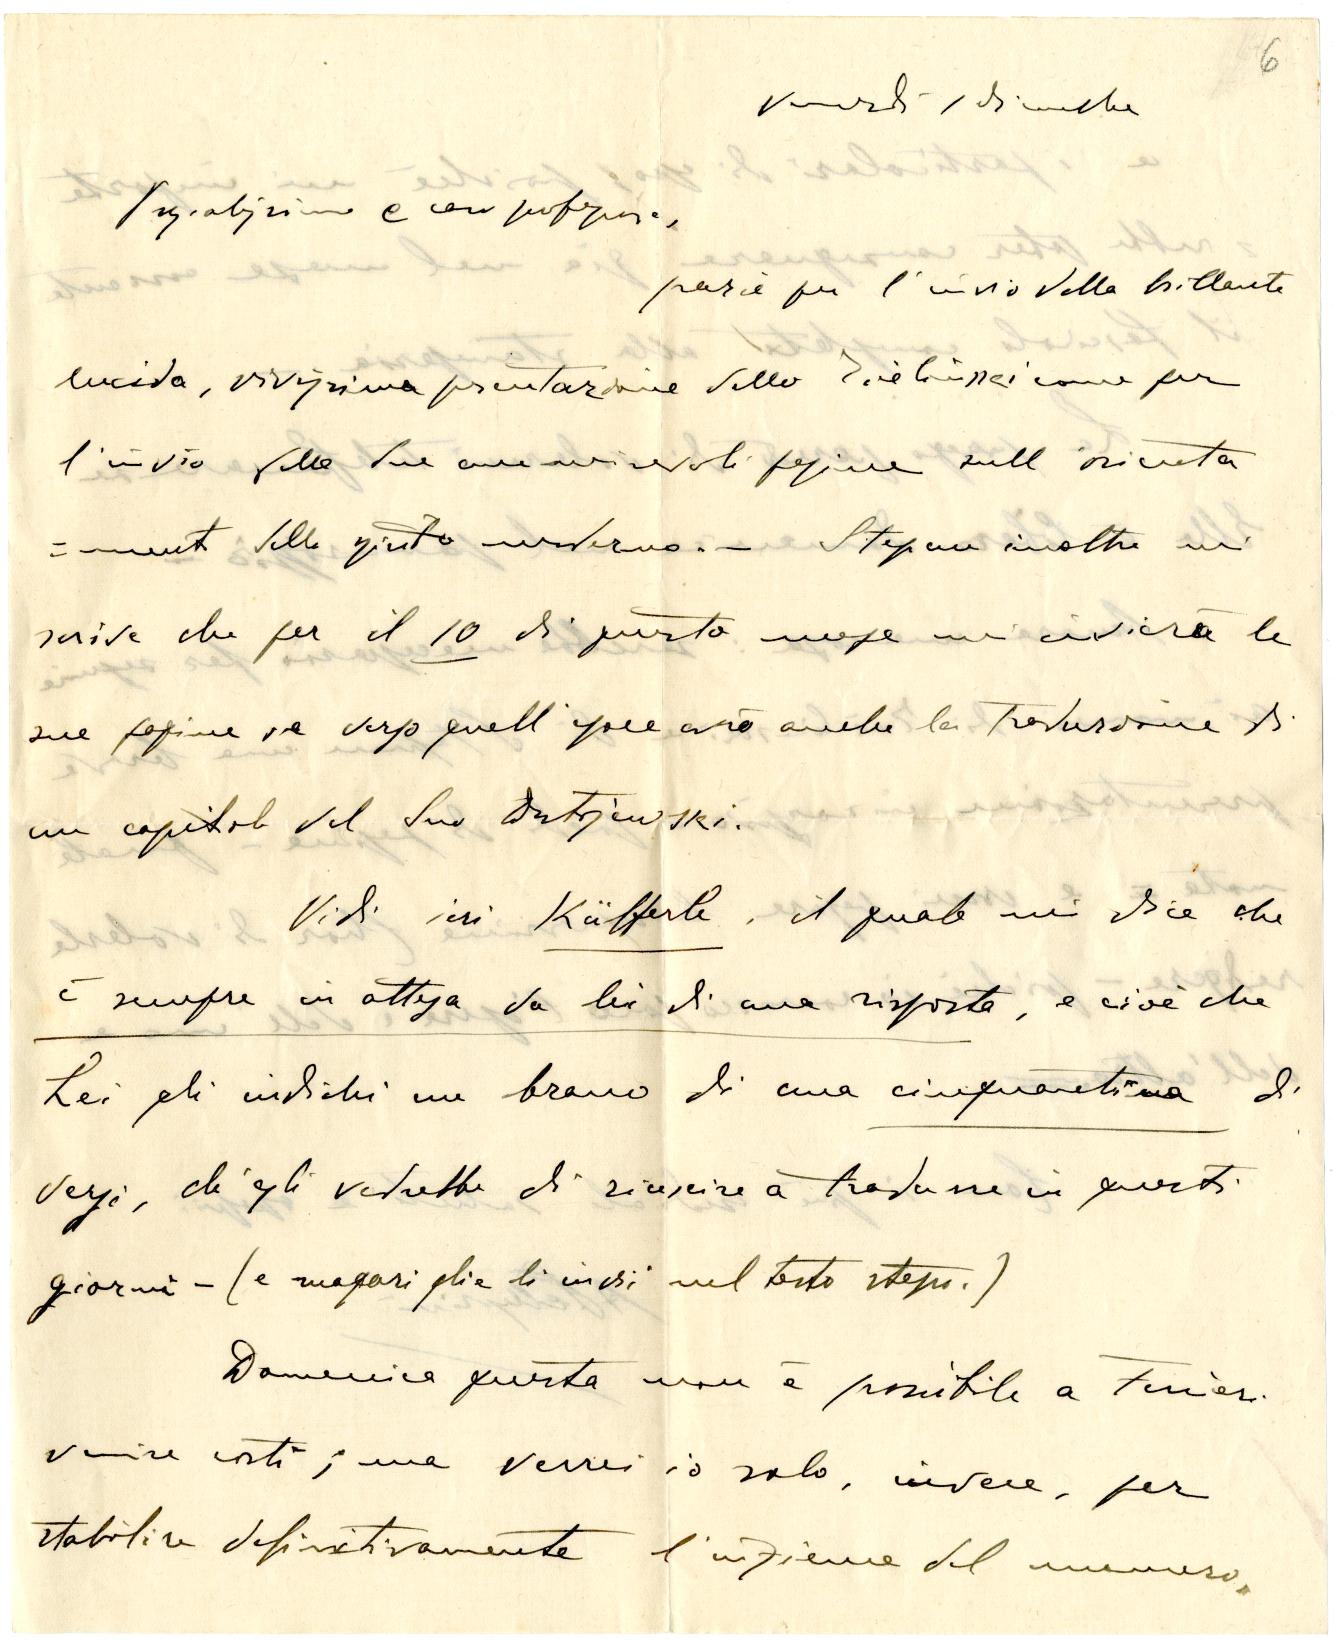 6
venerdì 1 dicembre
Pregiatissimo e caro professore,
grazie per l'invio della brillante
lucida, vivissima presentazione dello Zielinski come per
l'invio delle Sue ammirevoli pagine sull'orienta
=mento dello spirito moderno. — Stepun inoltre mi
scrive che per il 10 di questo mese mi invierà le
sue pagine e verso quell'epoca avrò anche la traduzione di
un capitolo del Suo Dostojewski.
Vidi ieri Küfferle, il quale mi dice che
è sempre in attesa da lei di una risposta, e cioè che
Lei gli indichi un brano di una cinquantina di
versi, ch'egli vedrebbe di riuscire a tradurre in questi
giorni — (e magari glie li invii nel testo stesso.)
Domenica questa non è possibile a
venire costì; ma verrei io solo, invece, per
stabilire definitivamente l'insieme del numero.